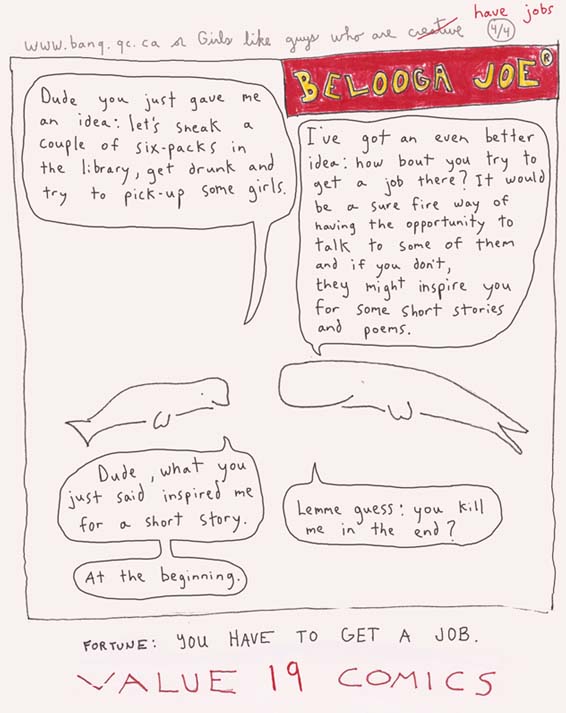 have jobs
www.banq.qc.ca or Girls like guys who are creative 4/4
BELOOGA JOE®
Dude you just gave me
an idea: let's sneak a
couple of six-packs in
the library, get drunk and
try to pick-up some girls.
I've got an even better
idea: how bout you try to
get a job there? It would
be a sure fire way of
having the opportunity to
talk to some of them
and if you don't,
they might inspire you
for some short stories
and poems.
Dude, what you
just said inspired me
for a short story.
At the beginning.
Lemme guess: you kill
me in the end?
FORTUNE: YOU HAVE TO GET A JOB.
VALUE 19 COMICS